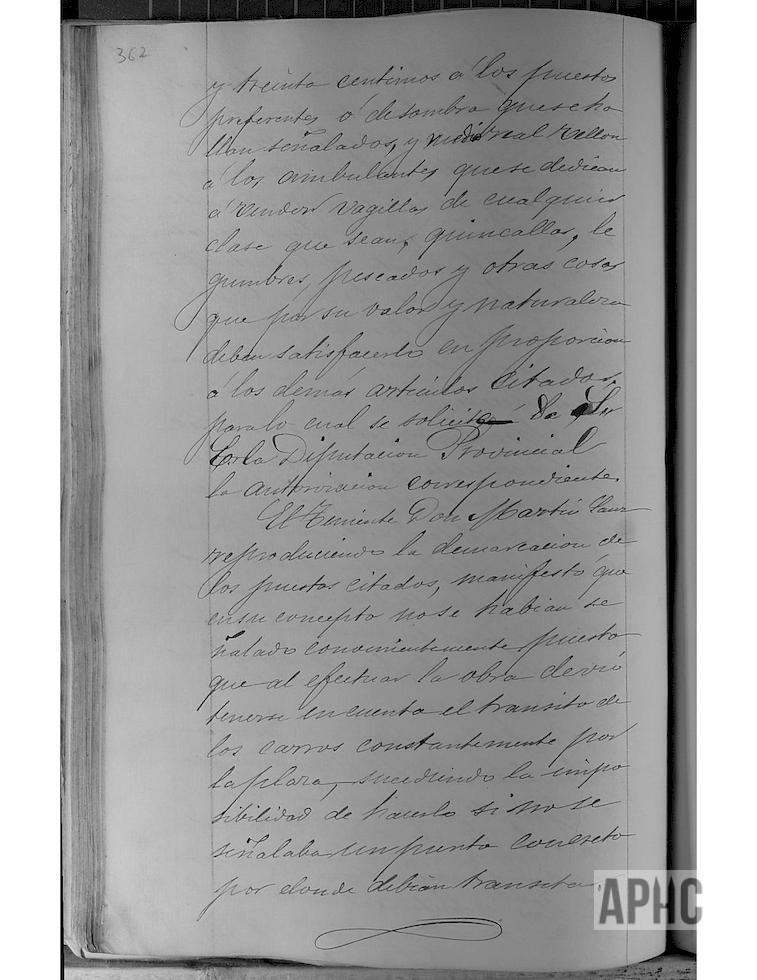 362
y treinta centimos á los puestos
preferentes ó de sombra que se ha
llan señalados, y medio real vellon
á los ambulantes que se dedican
á vender vagillas de cualquier
clase que sean, quincallas, le
gumbres, pescados y otras cosas
que por su valor y naturaleza
deban satisfacerlo en proporcion
á los demás articulos citados,
para lo cual se solicite
la Diputacion Provincial
la autorizacion correspondiente.
El Teniente Don Martin Sanz
reproduciendo la demarcacion de
los puestos citados, manifestó que
en su concepto no se habian se
ñalado convenientemente, puesto
que al efectuar la obra devió
tenerse en cuenta el transito de
los carros constantemente por
la plaza, sucediendo la impo
sibilidad de hacerlo si no se
señalaba un punto concreto
por donde debian transitar.
APHC